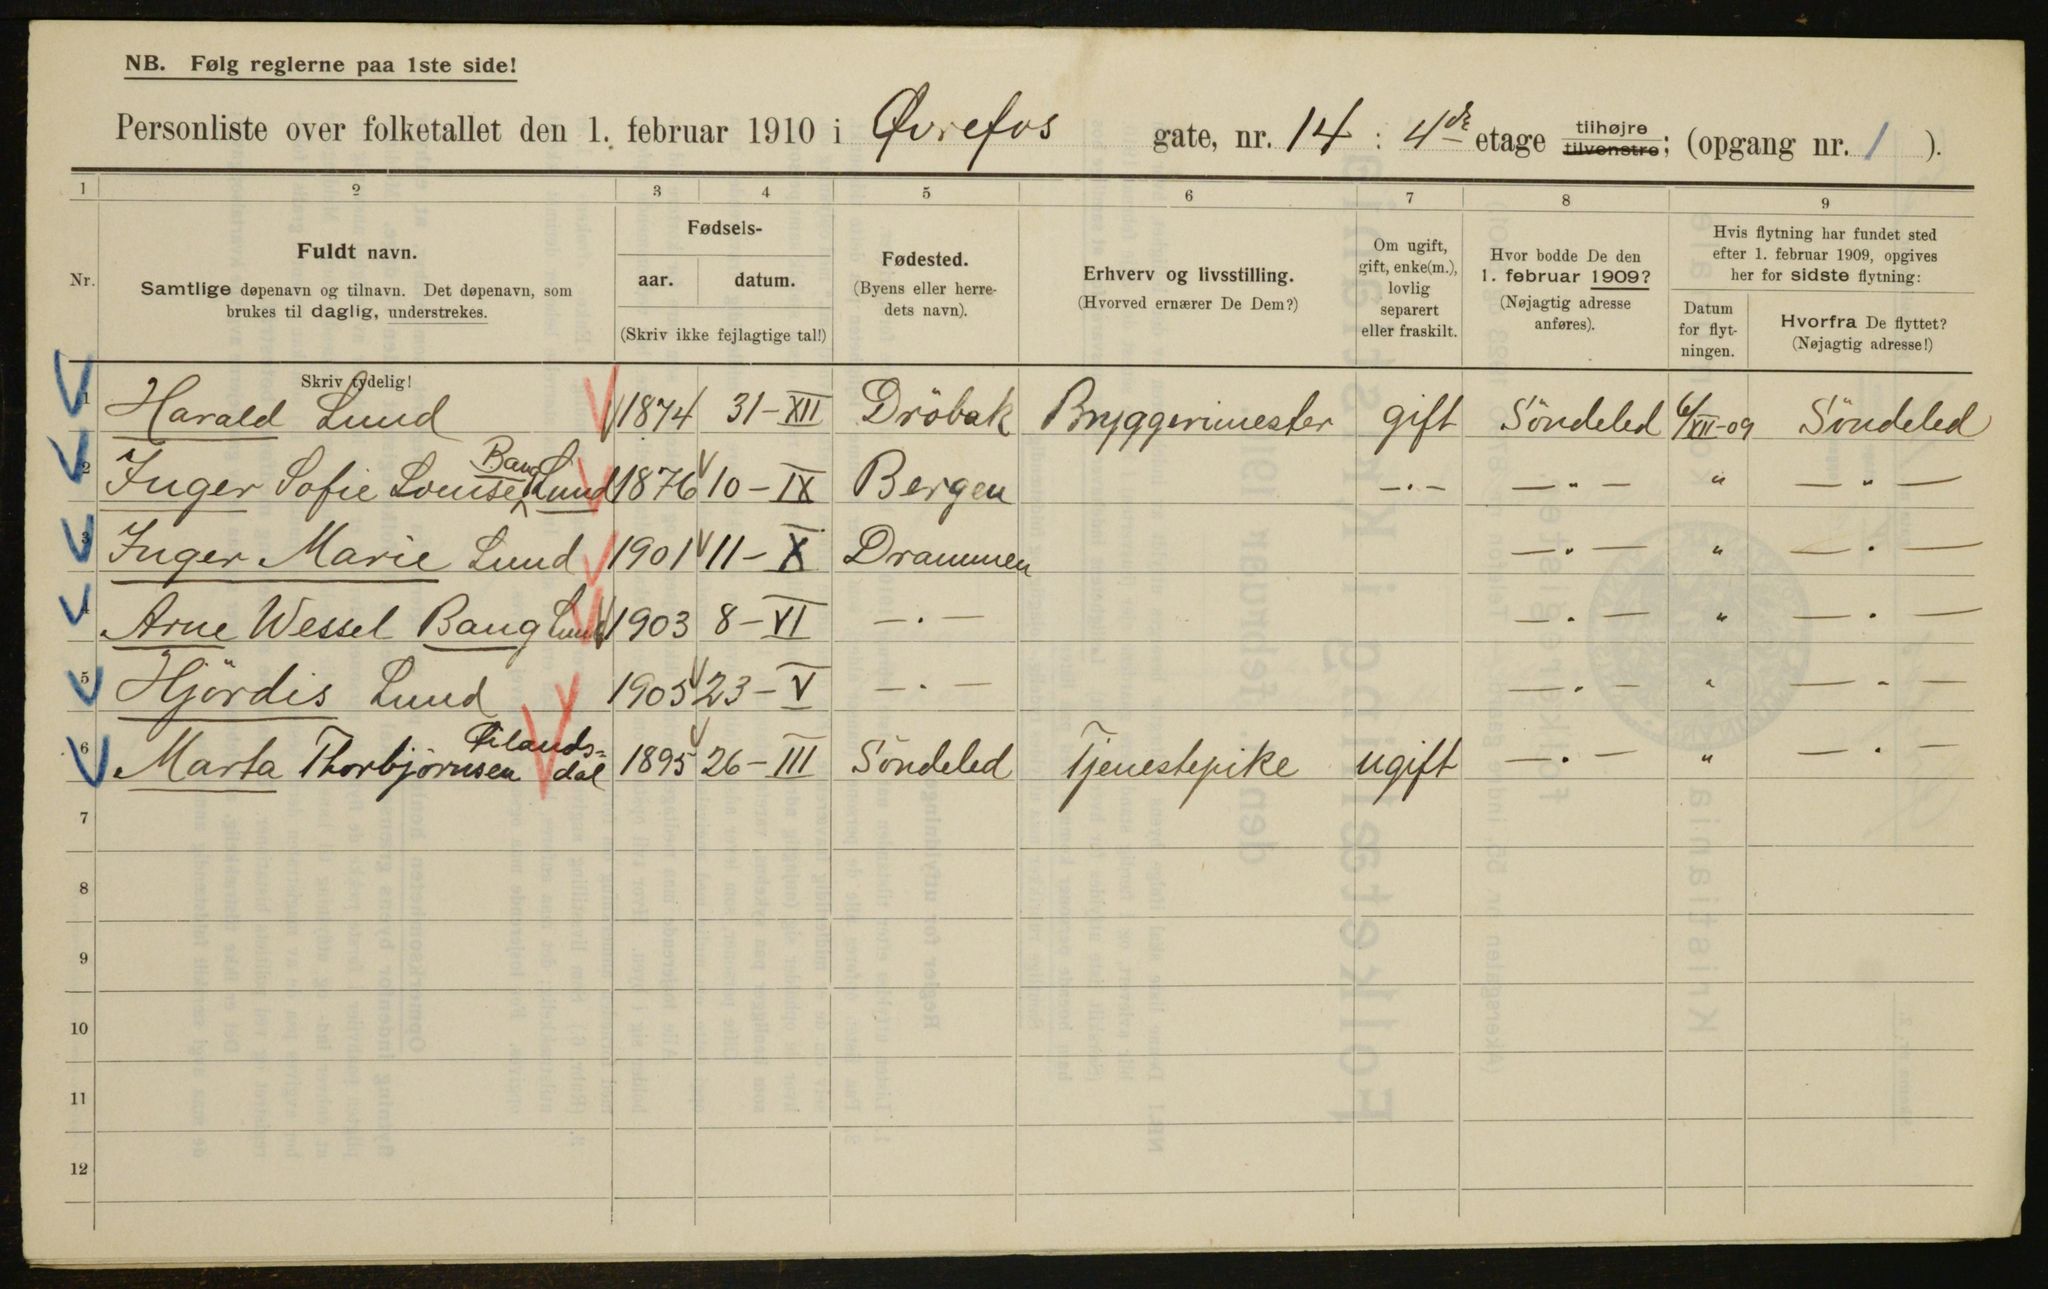 NB. Følg reglerne paa 1ste side!
Personliste over folketallet den 1. februar 1910 i Øvrefos gate, nr. 14 : 4de etage tilhøjre tilvenstre; (opgang nr. 1 ).
1 2 3 4 5 6 7 8 9
Nr.
Fuldt navn.
Samtlige døpenavn og tilnavn. Det døpenavn, som
brukes til daglig, understrekes.
Fødsels-
aar. datum.
(Skriv ikke fejlagtige tal!)
Fødested.
(Byens eller herre-
dets navn).
Erhverv og livsstilling.
(Hvorved ernærer De Dem?)
Om ugift,
gift, enke(m.),
lovlig
separert
eller fraskilt.
Hvor bodde De den
1. februar 1909?
(Nøjagtig adresse
anføres).
Hvis flytning har fundet sted
efter 1. februar 1909, opgives
her for sidste flytning:
Datum
for flyt-
ningen.
Hvorfra De flyttet?
(Nøjagtig adresse!)
Skriv tydelig!
1 Harald Lund 1874 31-XII Dröbak Bryggerimester gift Söndeled 6/XII-09 Söndeled
2 Inger Sofie Louise Bang Lund 1876 10-IX Bergen —·— —"— " —"—
3 Inger Marie Lund 1901 11-X Drammen —·— " —·—
4 Arne Wessel Bang Lund 1903 8-VI —·— —·— " —·—
5 Hjördis Lund 1905 23-V —·— —·— " —·—
6 Marta Thorbjörnsen 1895 26-III Söndeled Tjenestepike ugift —·— " —·—
7
8
9
10
11
12